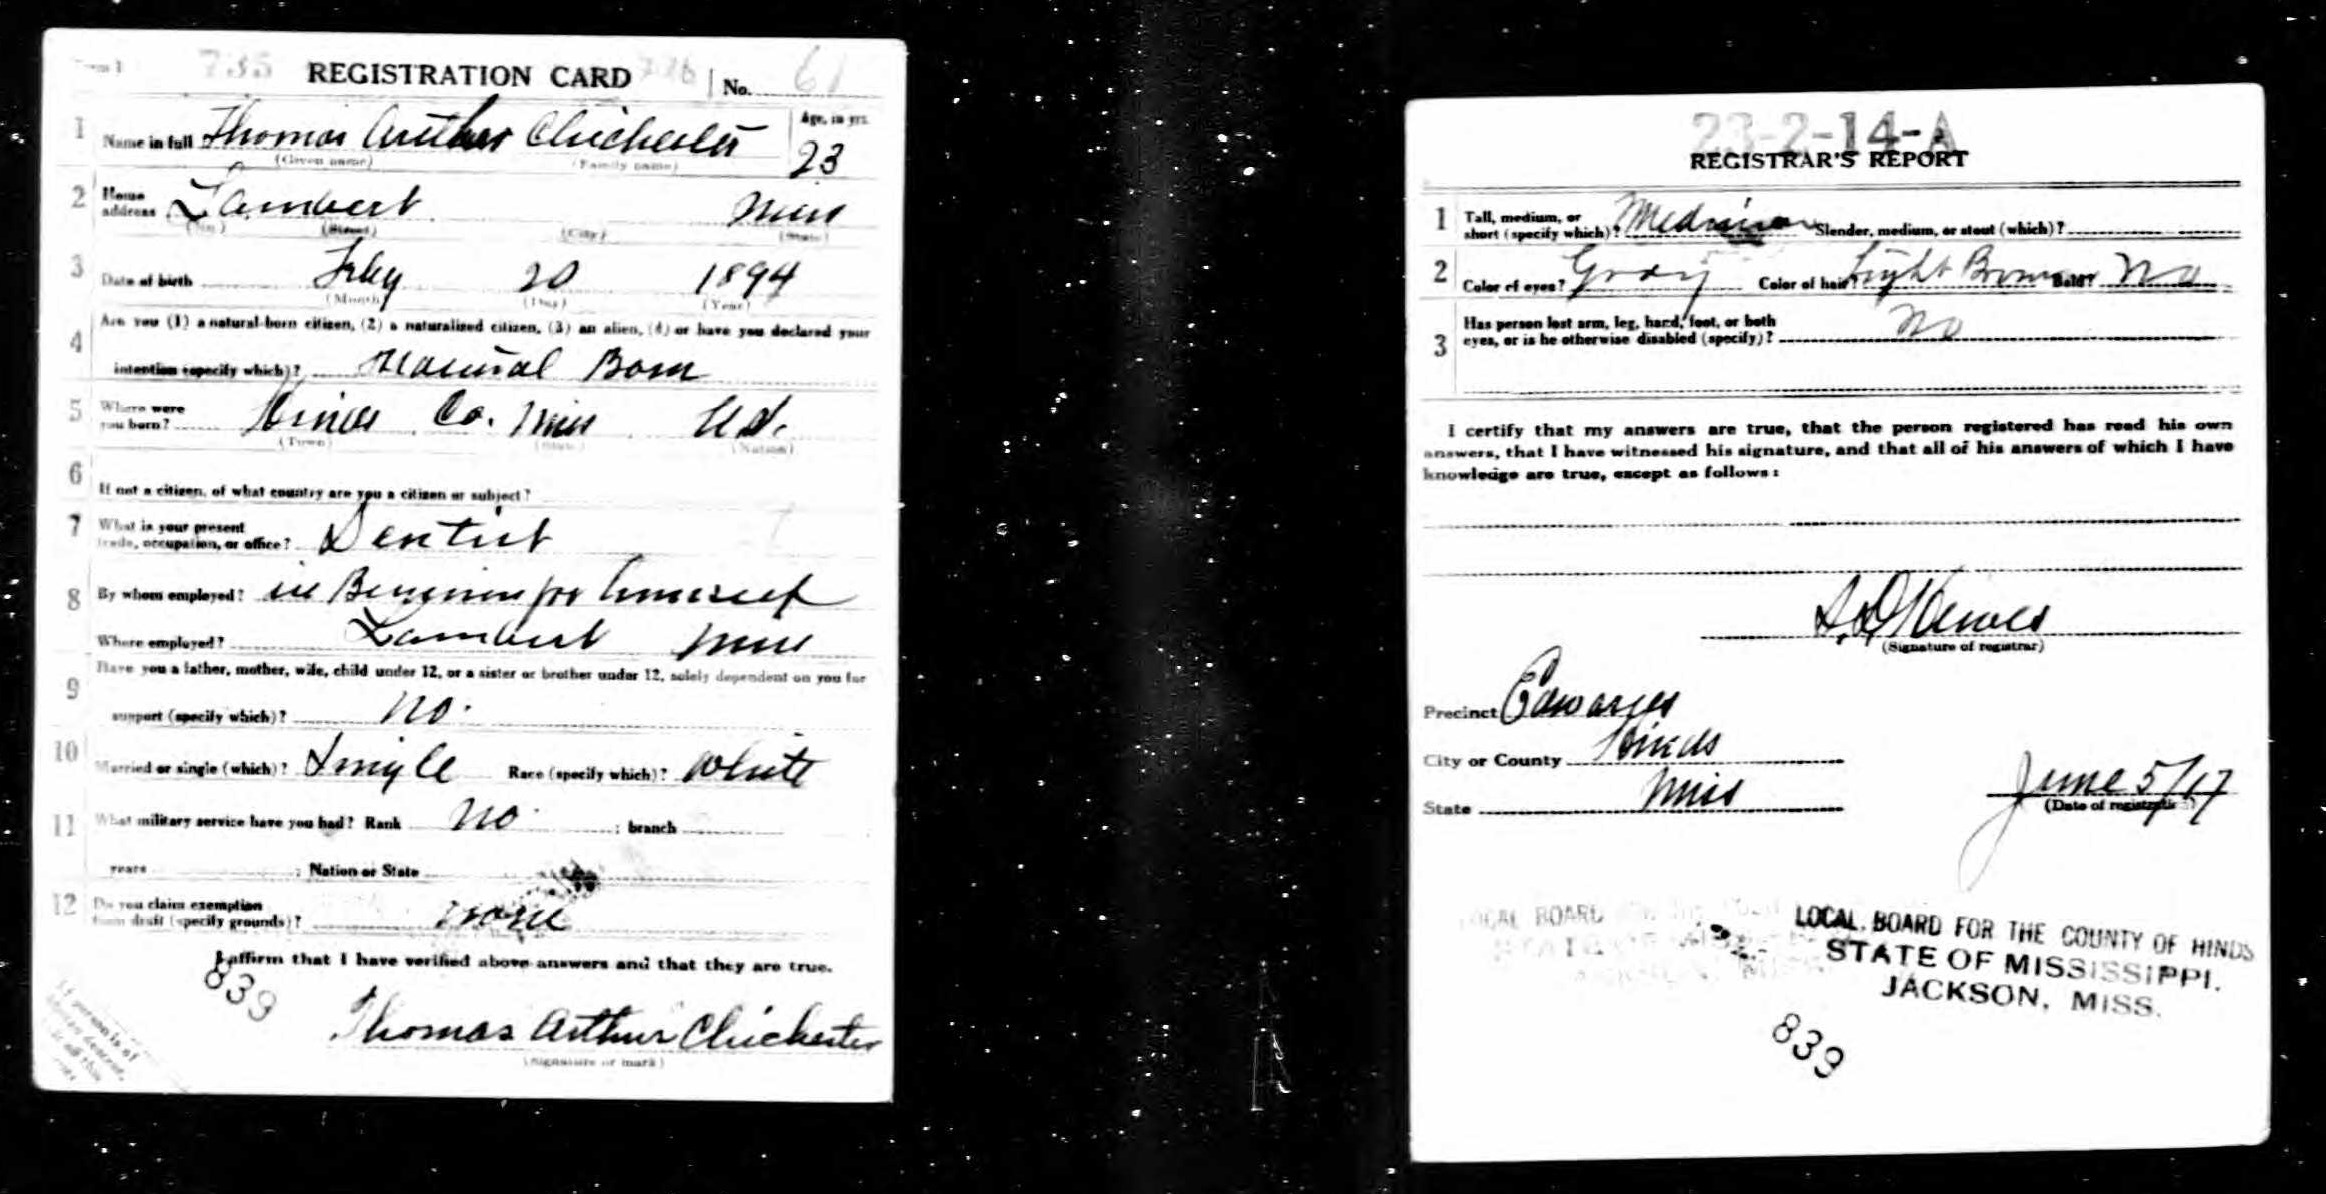 Form 1 735 REGISTRATION CARD 726 No. 61
1 Name in full Thomas Arthur Chichester Age, in yrs.
(Given name) (Family name) 23
2 Home address Lambert Miss
(No.) (Street) (City) (State)
3 Date of birth Feby 20 1894
(Month) (Day) (Year)
4 Are you (1) a natural-born citizen, (2) a naturalized citizen, (3) an alien, (4) or have you declared your
intention (specify which)? Natural Born
5 Where were you born? Hinds Co. Miss U.S.
(Town) (State) (Nation)
6 If not a citizen, of what country are you a citizen or subject?
7 What is your present trade, occupation, or office? Dentist
8 By whom employed? in Business for himself
Where employed? Lambert Miss
9 Have you a father, mother, wife, child under 12, or a sister or brother under 12, solely dependent on you for
support (specify which)? No.
10 Married or single (which)? Single Race (specify which)? White
11 What military service have you had? Rank No ; branch
years ; Nation or State
12 Do you claim exemption from draft (specify grounds)? None
I affirm that I have verified above answers and that they are true.
839
Thomas Arthur Chichester
(Signature or mark)
If person is of
African descent,
tear off this
corner
23-2-14-A
REGISTRAR'S REPORT
1 Tall, medium, or short (specify which)? Medium Slender, medium, or stout (which)?
2 Color of eyes? Gray Color of hair? Light Brown Bald? No
3 Has person lost arm, leg, hand, foot, or both eyes, or is he otherwise disabled (specify)? No
I certify that my answers are true, that the person registered has read his own
answers, that I have witnessed his signature, and that all of his answers of which I have
knowledge are true, except as follows:
(Signature of registrar)
Precinct Edwards
City or County Hinds
State Miss
June 5/17
(Date of registration)
LOCAL BOARD FOR THE COUNTY OF HINDS
STATE OF MISSISSIPPI.
JACKSON, MISS.
839